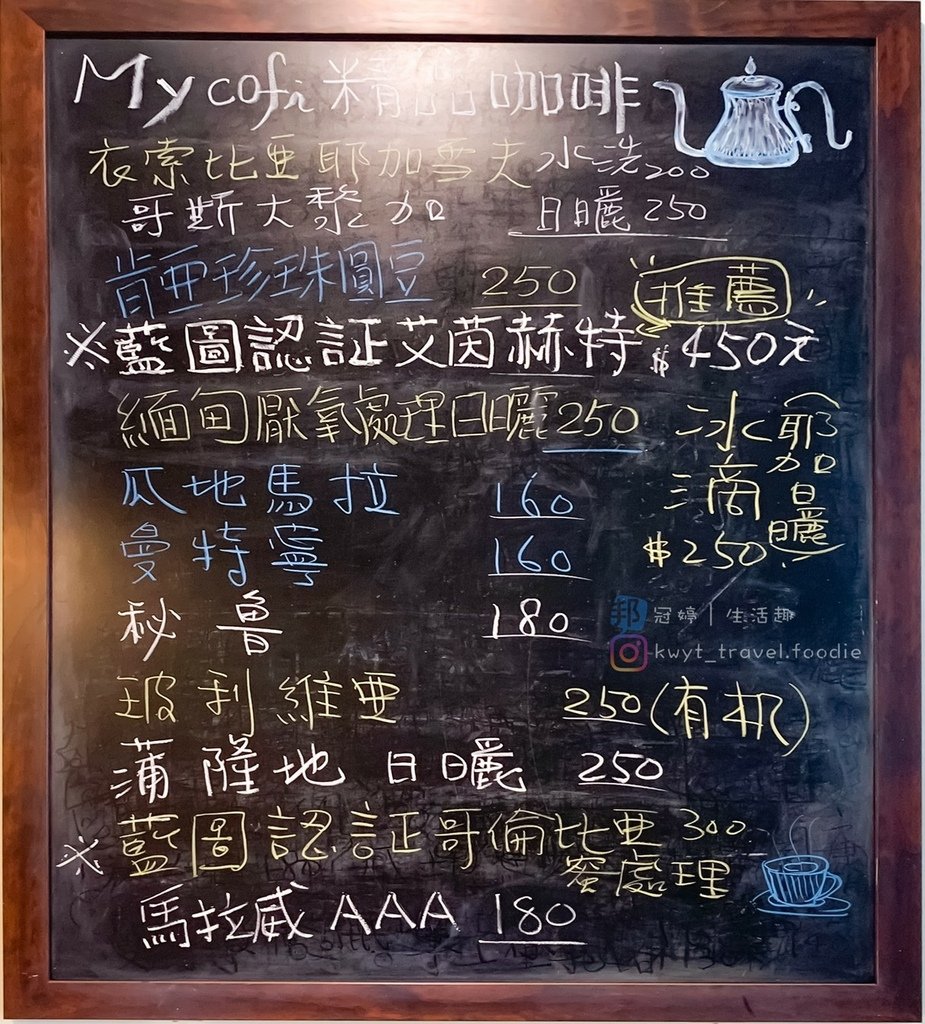 My cofi 精品咖啡
衣索比亞耶加雪夫水洗200
哥斯大黎加 日曬 250
肯亞珍珠圓豆 250 推薦
※藍圖認証艾茵赫特 $450元
緬甸厭氧處理日曬250
冰滴 $250
(耶加日曬)
瓜地馬拉 160
曼特寧 160
秘魯 180
邦 冠婷|生活趣
kwyt_travel.foodie
玻利維亞 250(有机)
蒲隆地 日曬 250
※藍圖認証哥倫比亞 300
蜜處理
馬拉威AAA 180